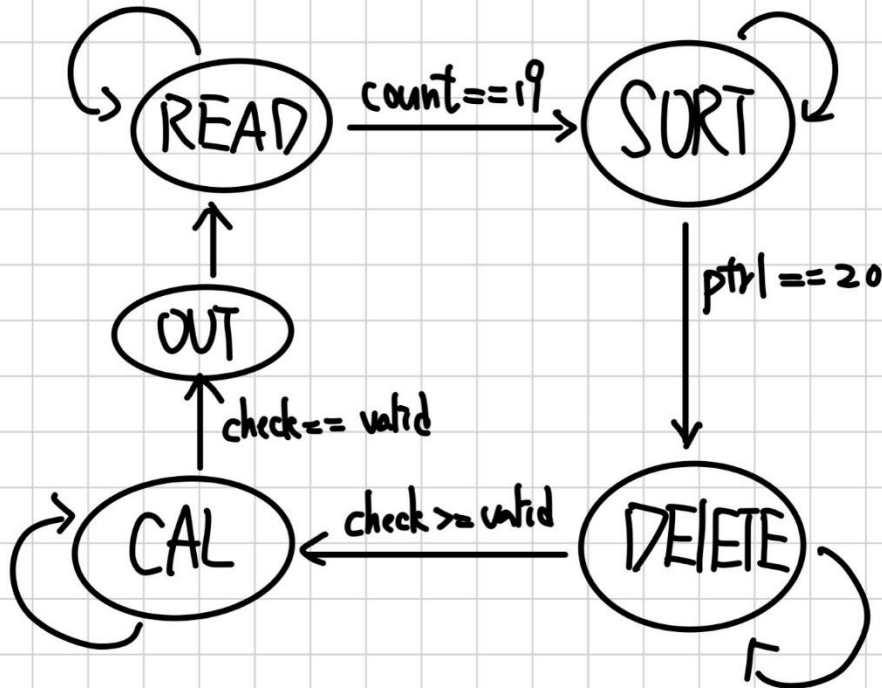 READ
count==19
SORT
ptr1==20
OUT
check== valid
CAL
check>=valid
DELETE